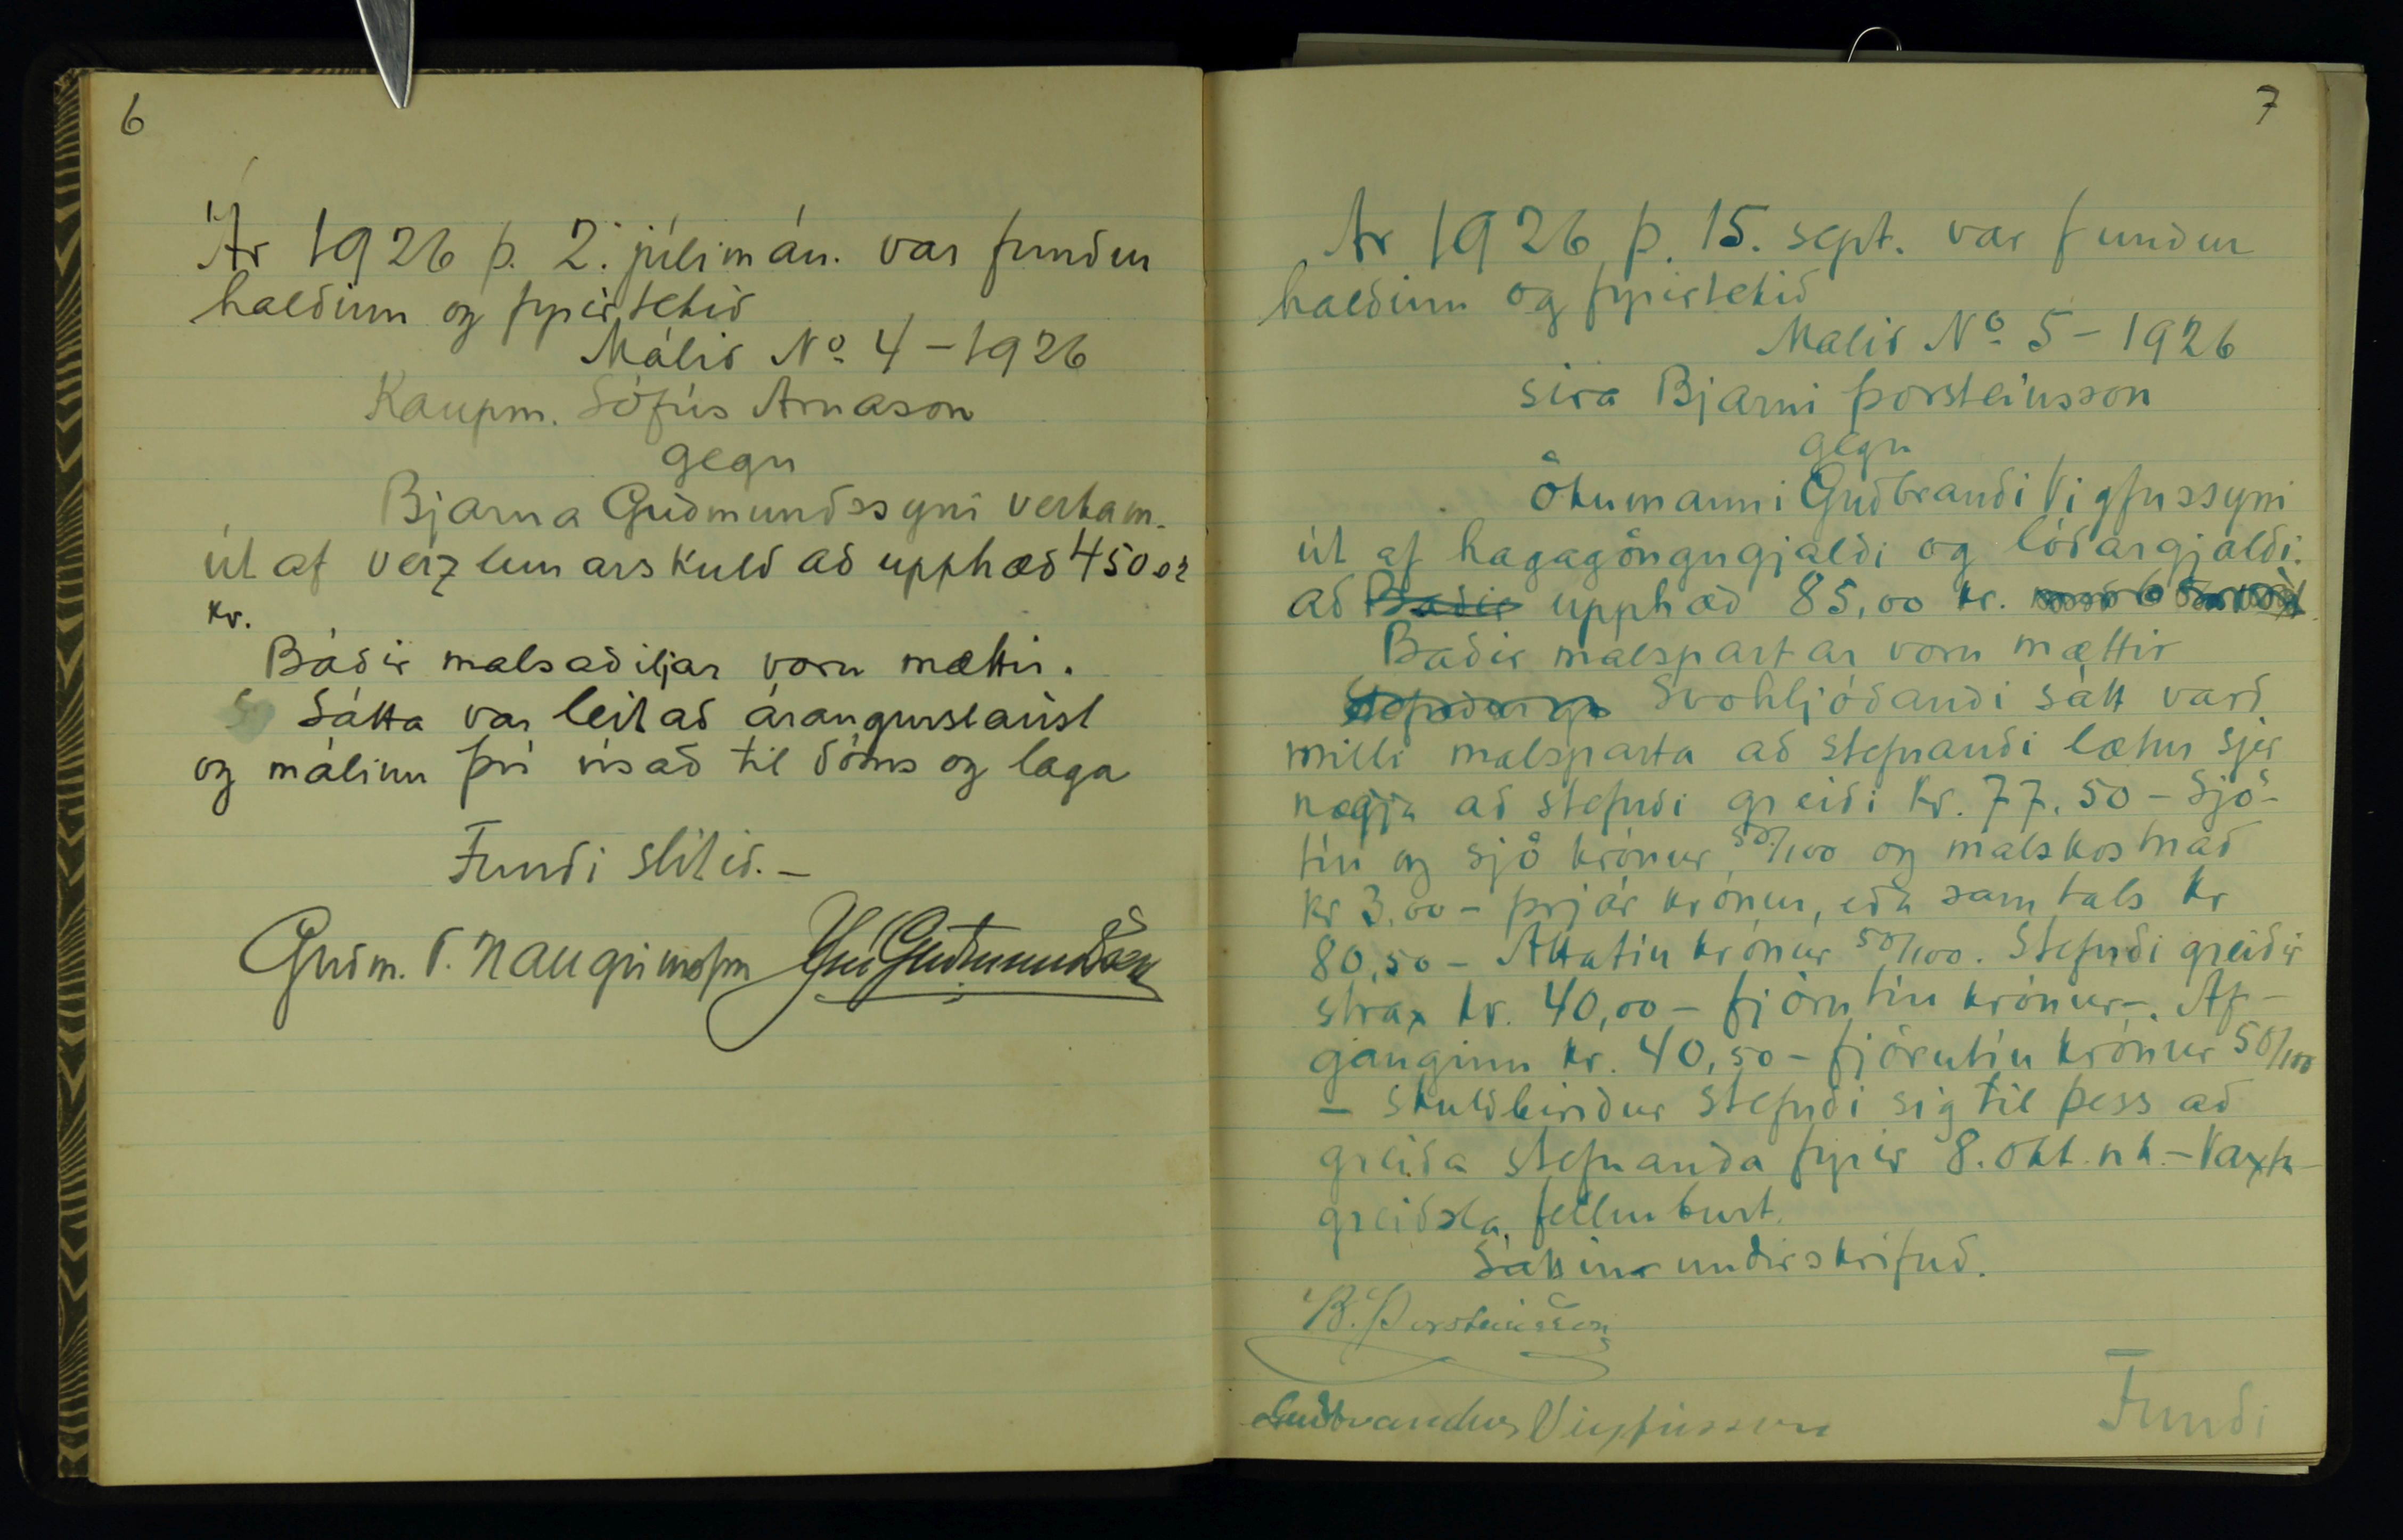 6
Ár 1926 þ. 2. júlimán. var fundur
haldinn og fyrirtekið
Málið No 4 - 1926
Kaupm. Sófús Arnason
gegn
Bjarna Guðmundssyni verkam.
út af verzlunarskuld að upphæð 450.02
kr.
Báðir malsaðiljar voru mættir.
Sátta var leitað árangurslaust
og málinu því vísað til dóms og laga
Fundi slitið. -
Guðm. T. Hallgrimsson Jón Guðmundsson
7
Ár 1926 þ. 15. sept. var fundur
haldinn og fyrirtekið
Malið No 5 - 1926
sira Bjarni Þorsteinsson
gegn
Ökumanni Guðbrandi Vigfussyni
út af hagagöngugjaldi og lóðargjaldi.
að Baðir upphæð 85,00 kr.
Baðir malspartar voru mættir
Svohljóðandi sátt varð
milli malsparta að stefnandi lætur sjer
nægja að stefndi greiði kr. 77.50 - Sjö-
tíu og sjö krónur 50/100 og málskostnað
kr 3.00 - þrjár krónur, eða samtals kr
80,50 - Áttatíu krónur 50/100. Stefndi greiðir
strax kr. 40,00 - fjörutíu krónur -. Af-
ganginn kr. 40,50 - fjörutíu krónur 50/100
- skuldbindur stefndi sig til þess að
greiða stefnanda fyrir 8. okt. n k. - Vaxta-
greiðsla fellur burt.
Sáttin undirskrifuð.
B. Þorsteinsson
Guðbrandur Vigfússon
Fundi